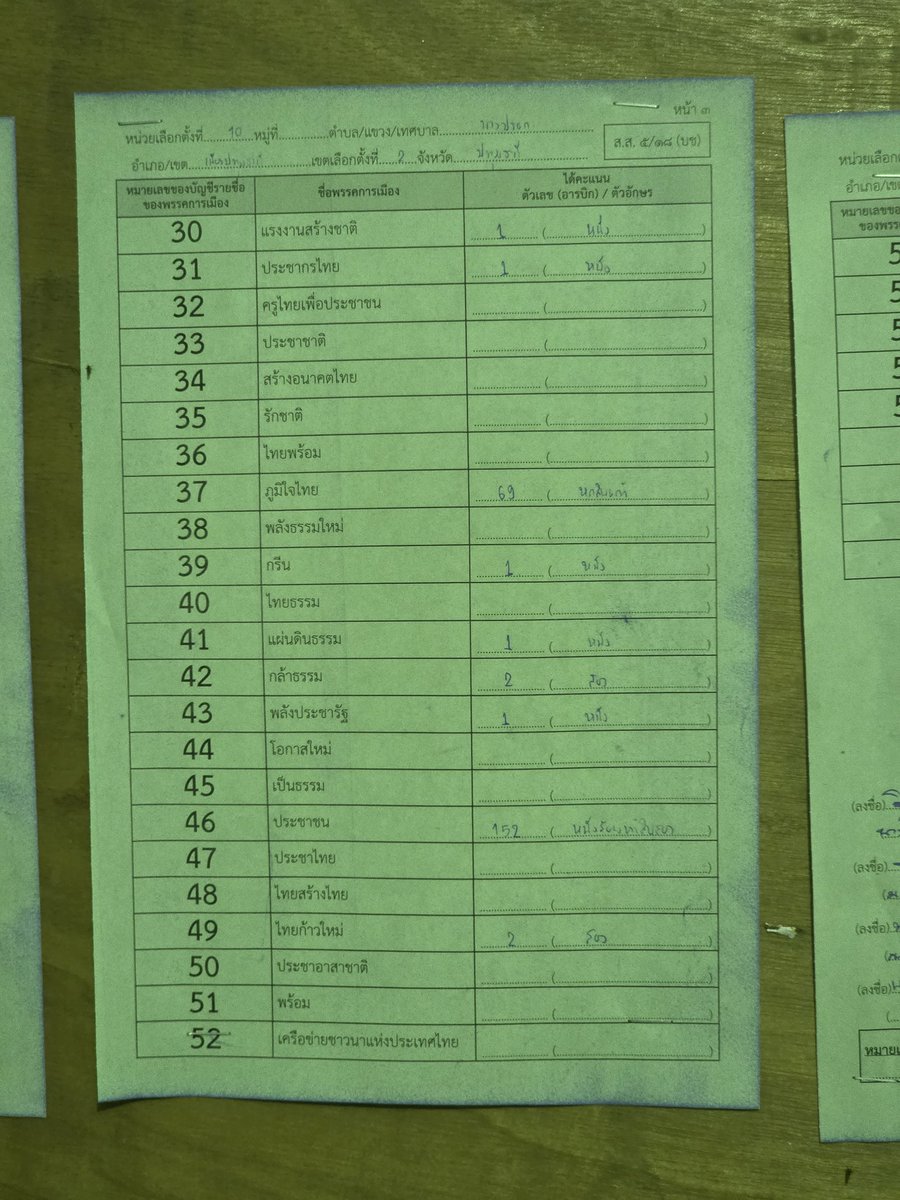 หน้า ๓
หน่วยเลือกตั้งที่ 10 หมู่ที่ ตำบล/แขวง/เทศบาล บางปรอก
ส.ส. ๕/๑๘ (บช)
อำเภอ/เขต เมืองปทุมธานี เขตเลือกตั้งที่ 2 จังหวัด ปทุมธานี
หมายเลขของบัญชีรายชื่อของพรรคการเมือง ชื่อพรรคการเมือง ได้คะแนน ตัวเลข (อารบิก) / ตัวอักษร
30 แรงงานสร้างชาติ 1 (หนึ่ง)
31 ประชากรไทย 1 (หนึ่ง)
32 ครูไทยเพื่อประชาชน ( )
33 ประชาชาติ ( )
34 สร้างอนาคตไทย ( )
35 รักชาติ ( )
36 ไทยพร้อม ( )
37 ภูมิใจไทย 69 (หกสิบเก้า)
38 พลังธรรมใหม่ ( )
39 กรีน 1 (หนึ่ง)
40 ไทยธรรม ( )
41 แผ่นดินธรรม 1 (หนึ่ง)
42 กล้าธรรม 2 (สอง)
43 พลังประชารัฐ 1 (หนึ่ง)
44 โอกาสใหม่ ( )
45 เป็นธรรม ( )
46 ประชาชน 152 (หนึ่งร้อยห้าสิบสอง)
47 ประชาไทย ( )
48 ไทยสร้างไทย ( )
49 ไทยก้าวใหม่ 2 (สอง)
50 ประชาอาสาชาติ ( )
51 พร้อม ( )
52 เครือข่ายชาวนาแห่งประเทศไทย ( )
(ลงชื่อ)
(ลงชื่อ)
(ลงชื่อ)
(ลงชื่อ)